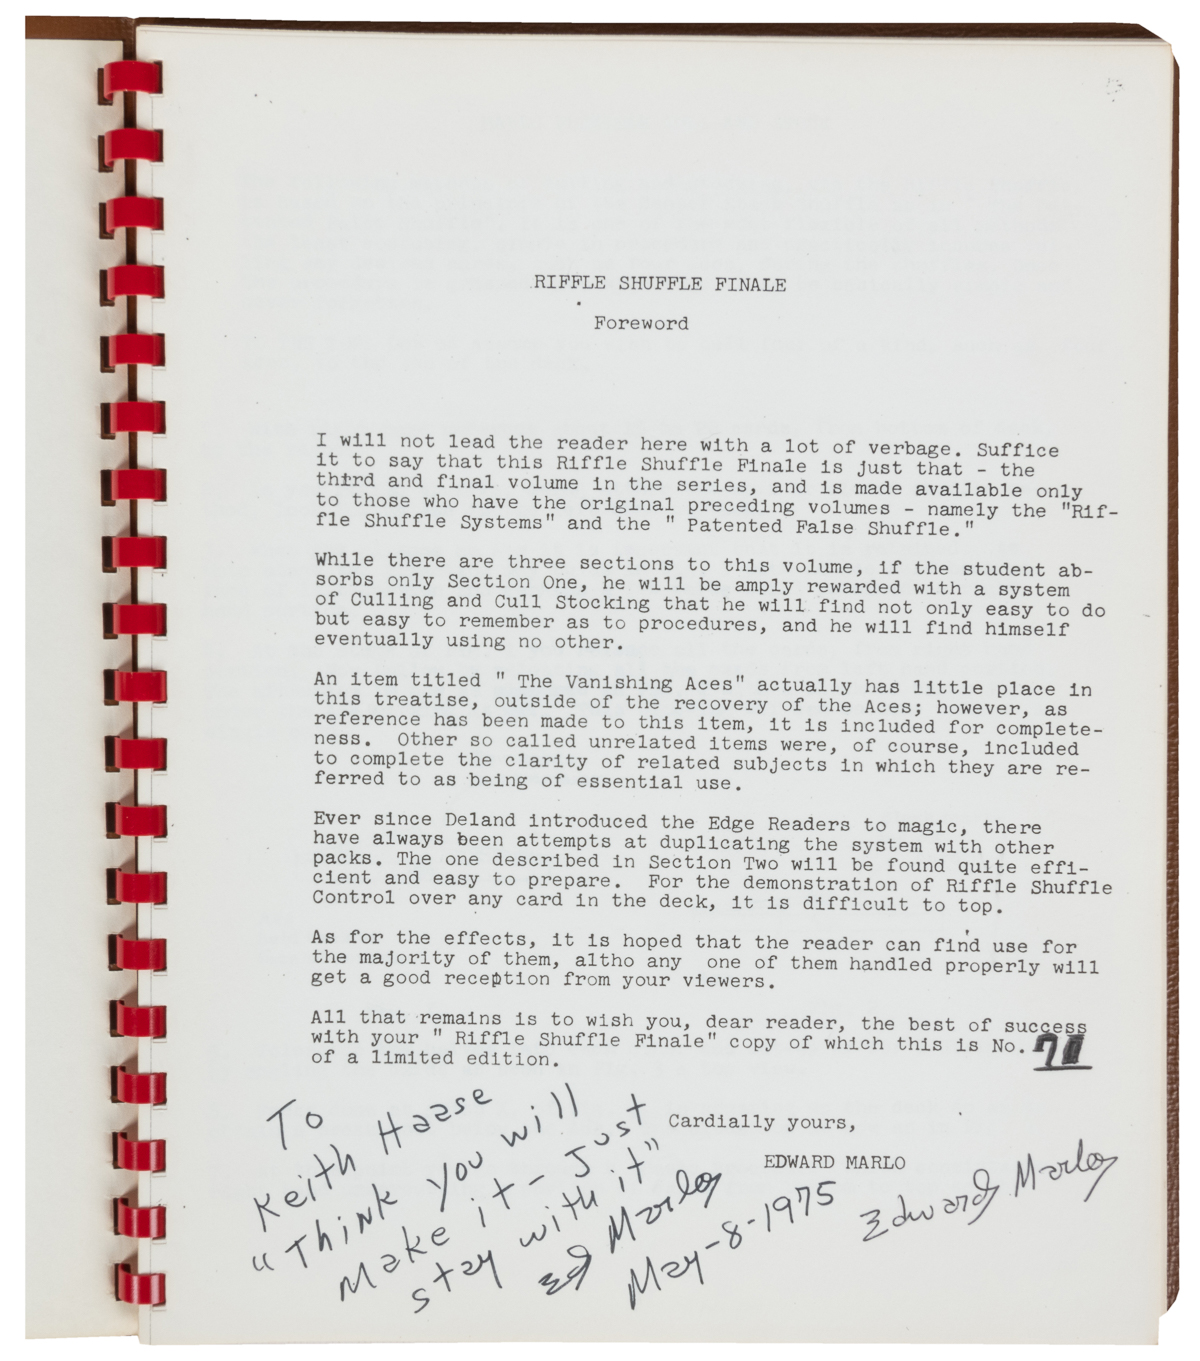 RIFFLE SHUFFLE FINALE
Foreword
I will not lead the reader here with a lot of verbage. Suffice
it to say that this Riffle Shuffle Finale is just that - the
third and final volume in the series, and is made available only
to those who have the original preceding volumes - namely the "Rif-
fle Shuffle Systems" and the " Patented False Shuffle."
While there are three sections to this volume, if the student ab-
sorbs only Section One, he will be amply rewarded with a system
of Culling and Cull Stocking that he will find not only easy to do
but easy to remember as to procedures, and he will find himself
eventually using no other.
An item titled " The Vanishing Aces" actually has little place in
this treatise, outside of the recovery of the Aces; however, as
reference has been made to this item, it is included for complete-
ness.  Other so called unrelated items were, of course, included
to complete the clarity of related subjects in which they are re-
ferred to as being of essential use.
Ever since Deland introduced the Edge Readers to magic, there
have always been attempts at duplicating the system with other
packs. The one described in Section Two will be found quite effi-
cient and easy to prepare.  For the demonstration of Riffle Shuffle
Control over any card in the deck, it is difficult to top.
As for the effects, it is hoped that the reader can find use for
the majority of them, altho any  one of them handled properly will
get a good reception from your viewers.
All that remains is to wish you, dear reader, the best of success
with your " Riffle Shuffle Finale" copy of which this is No. 71
of a limited edition.
Cardially yours,
EDWARD MARLO
Edward Marlo
To
Keith Haase
"Think you will
make it - Just
stay with it"
Ed Marlo
May-8-1975